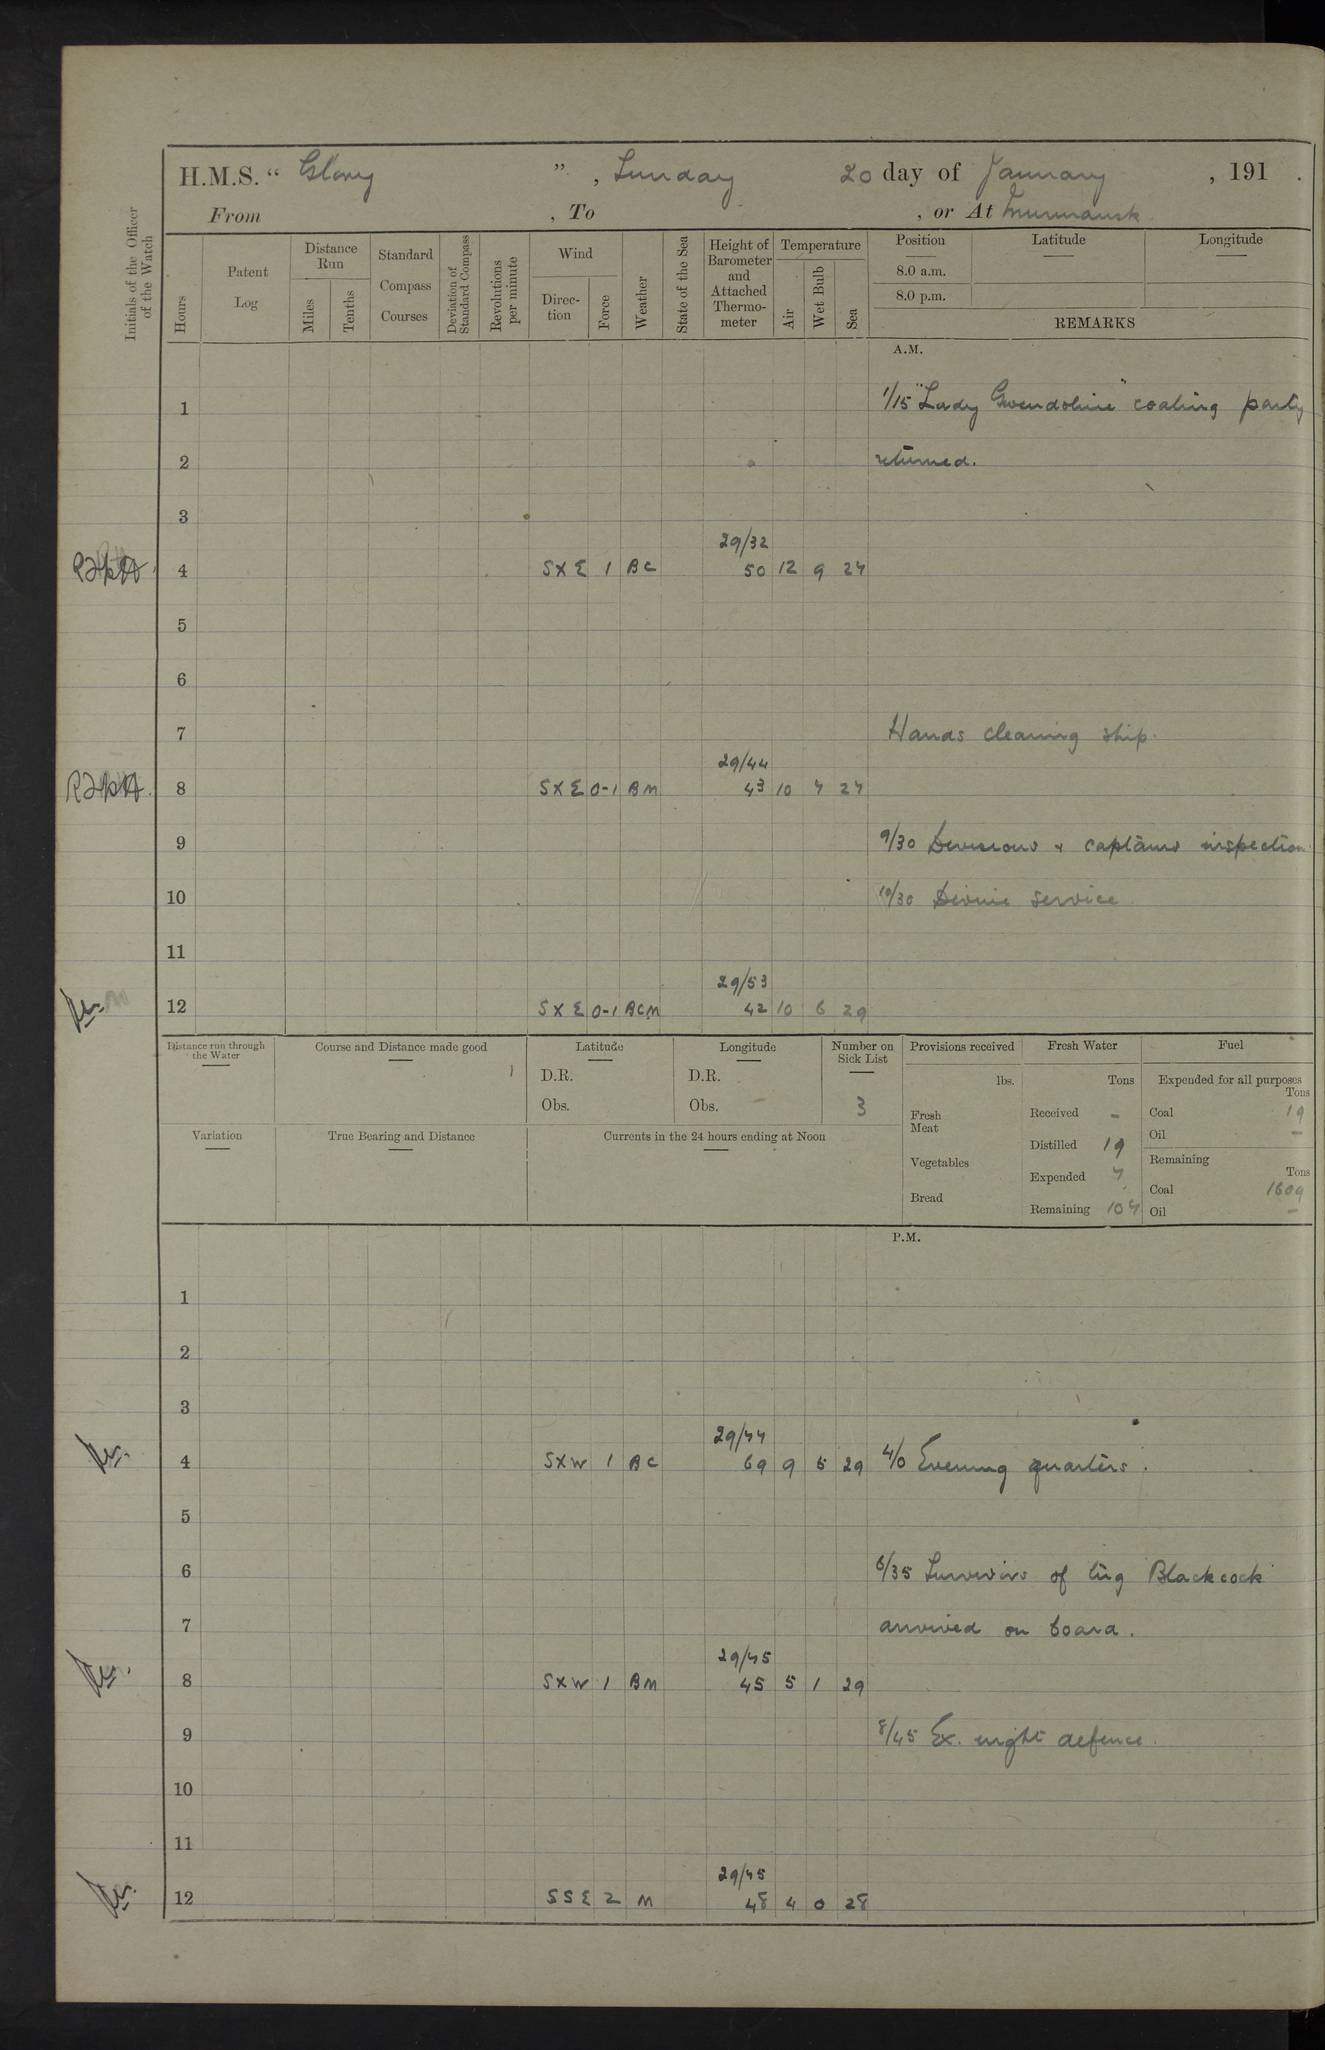 H.M.S. “ Glory ” , Sunday 20 day of January , 191 .
From , To , or At Murmansk
Initials of the Officer of the Watch
Hours
Patent Log
Distance Run
Miles
Tenths
Standard Compass Courses
Deviation of Standard Compass
Revolutions per minute
Wind
Direc-tion
Force
Weather
State of the Sea
Height of Barometer and Attached Thermo-meter
Temperature
Air
Wet Bulb
Sea
Position
8.0 a.m.
8.0 p.m.
Latitude
Longitude
REMARKS
A.M.
1 1/15 "Lady Gwendoline" coaling party
2 returned.
3
29/32
4 S X E 1 BC 50 12 9 27
5
6
7 Hands cleaning ship.
29/44
8 S X E 0-1 BM 43 10 7 27
9 9/30 Divisions & captains inspection
10 10/30 Divine service
11
29/53
12 S X E 0-1 BCM 42 10 6 29
Distance run through the Water
Course and Distance made good
Latitude
D.R.
Obs.
Longitude
D.R.
Obs. -
Number on Sick List
3
Provisions received
lbs.
Fresh Meat
Vegetables
Bread
Fresh Water
Tons
Received -
Distilled 19
Expended 7
Remaining 107
Fuel
Expended for all purposes
Tons
Coal 19
Oil -
Remaining
Tons
Coal 1609
Oil -
Variation
True Bearing and Distance
Currents in the 24 hours ending at Noon
P.M.
1
2
3
29/77
4 S X W 1 BC 69 9 5 29 4/0 Evening quarters.
5
6 6/35 Survivors of tug Blackcock
7 arrived on board.
29/75
8 S X W 1 BM 45 5 1 29
9 8/45 Ex. night defence.
10
11
29/75
12 SSE 2 M 48 4 0 28